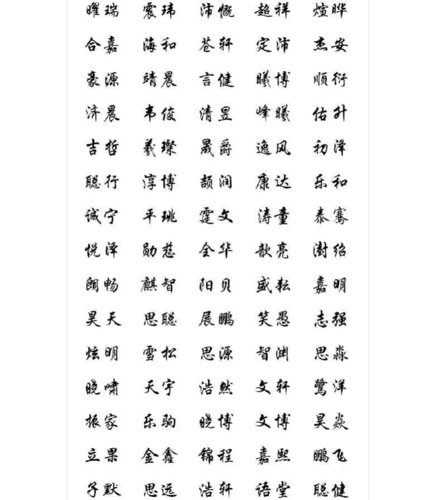 曜瑞 震玮 沛慨 超祥 煊晔
合嘉 海和 苍轩 定沛 杰安
豪源 靖晨 言健 曦博 顺衍
济晨 韦俊 清昱 峰曦 佑升
吉哲 羲璨 晟爵 逸风 初泽
聪行 淳博 颉润 康达 乐和
诚宁 平珧 霆文 涛童 泰骞
悦泽 勋慈 全华 歆亮 澍绍
朗畅 麒智 阳贝 盛耘 嘉明
昊天 思聪 展鹏 笑愚 志强
炫明 雪松 思源 智渊 思淼
晓啸 天宇 浩然 文轩 鹭洋
振家 乐驹 晓博 文博 昊焱
立果 金鑫 锦程 嘉熙 鹏飞
子默 思远 浩轩 语堂 聪健